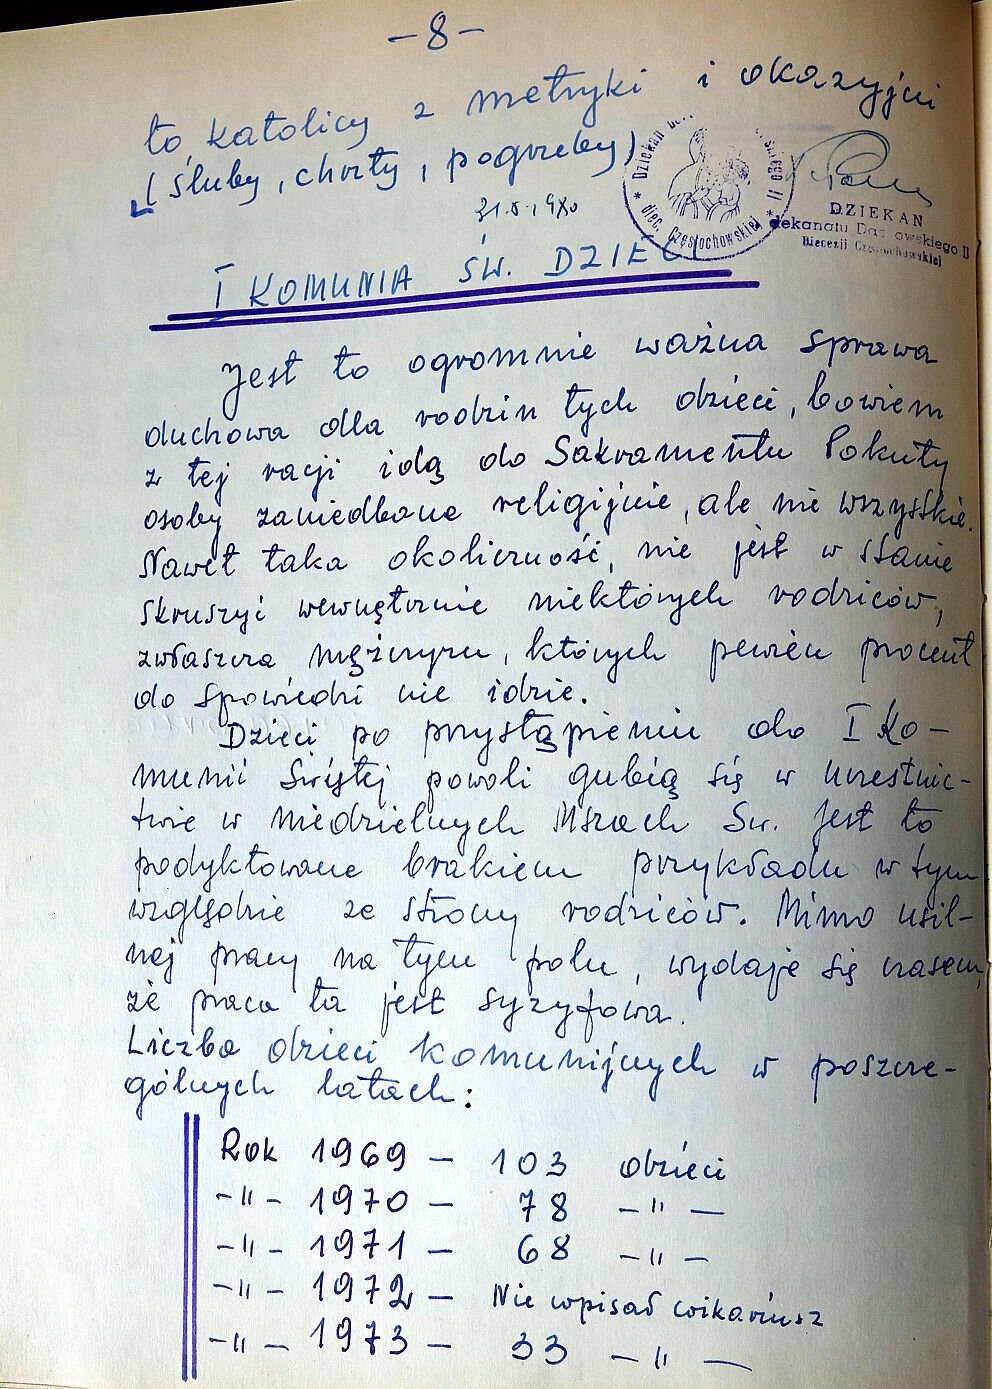 -8-
to, katolicy z metryki i okazyjni
(śluby, chrzty, pogrzeby)
* Dziekan II * diec. Częstochowskiej
DZIEKAN
dekanatu
Diecezji Częstochowskiej
I KOMUNIA ŚW. DZIECI
Jest to ogromnie ważna sprawa
duchowa dla rodzin tych dzieci, bowiem
z tej racji idą do Sakramentu Pokuty
osoby zaniedbane religijnie, ale nie wszystkie.
Nawet taka okoliczność, nie jest w stanie
skruszyć wewnętrznie niektórych rodziców,
zwłaszcza mężczyzn, których pewien procent
do spowiedzi nie idzie.
Dzieci po przystąpieniu do I Ko-
munii Świętej powoli gubią się w uczestnic-
twie w niedzielnych Mszach Św. Jest to
podyktowane brakiem przykładu w tym
względzie ze strony rodziców. Mimo usil-
nej pracy na tym polu, wydaje się czasem,
że praca ta jest syzyfowa.
Liczba dzieci komunijnych w poszcze-
gólnych latach:
Rok 1969 - 103 dzieci
-"- 1970 - 78 -"-
-"- 1971 - 68 -"-
-"- 1972 - Nie wpisał wikariusz
-"- 1973 - 33 -"-